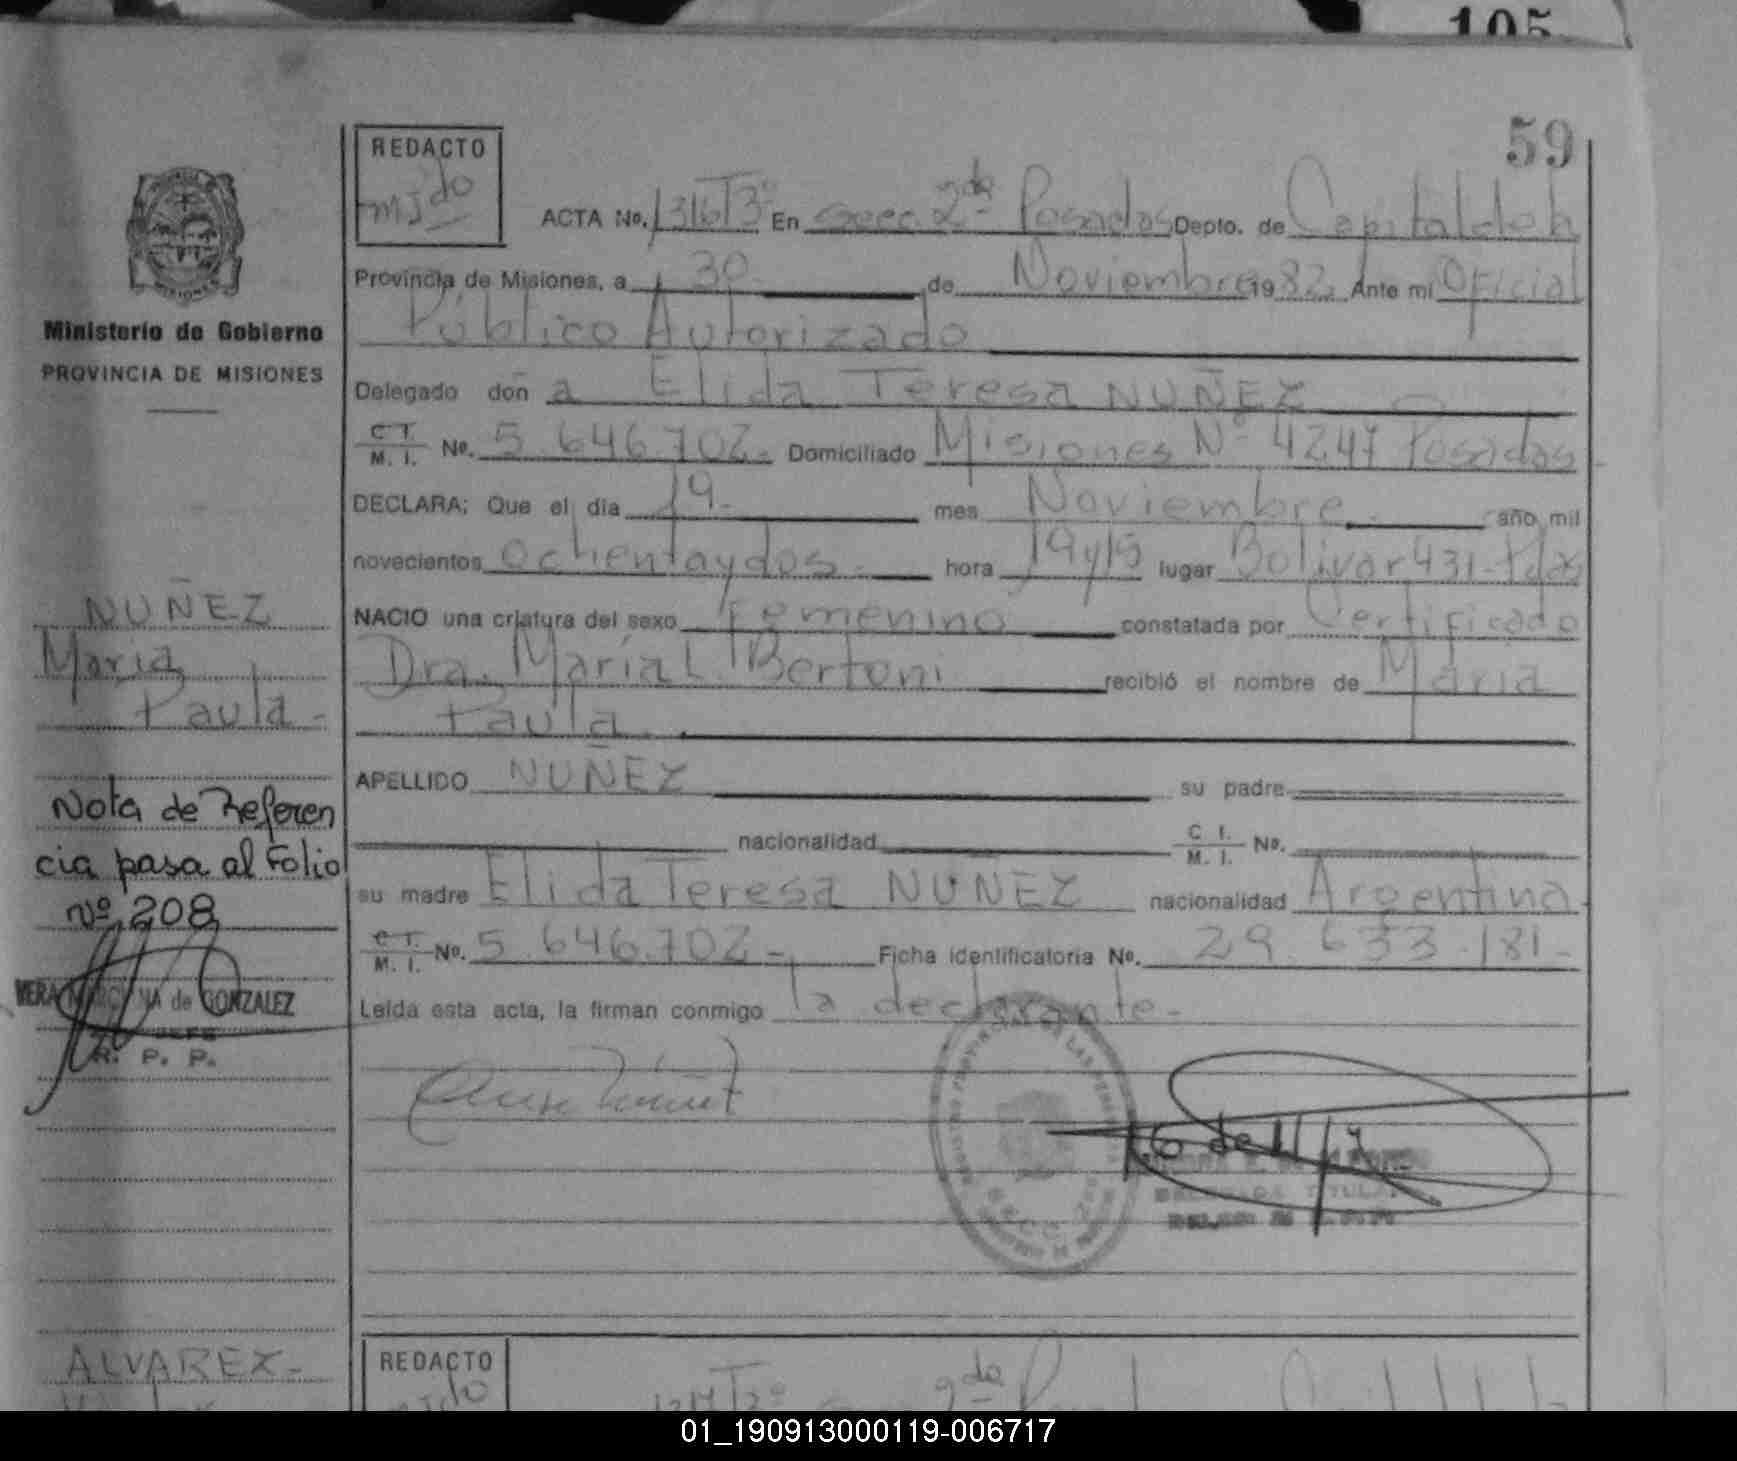 105
59
REDACTO
mjdo
ACTA No. 1316T3º En secc. 2da Posadas Depto. de Capital de la
Provincia de Misiones, a 30 de Noviembre 1982. Ante mi Oficial
Público Autorizado
Delegado don a Elida Teresa NUÑEZ
C I.
M. I. No. 5.646.702.- Domiciliado Misiones Nº 4247 Posadas-
DECLARA; Que el día 19- mes Noviembre. año mil
novecientos ochentaydos.- hora 19y15 lugar Bolívar 431-Pdas
NACIO una criatura del sexo femenino constatada por Certificado
Dra. María L. Bertoni recibió el nombre de María
Paula.
APELLIDO NUÑEZ su padre
nacionalidad C I.
M. I. No.
su madre Elida Teresa NUÑEZ nacionalidad Argentina.
C I.
M. I. No. 5.646.702- Ficha identificatoria No. 29.633.181-
Leída esta acta, la firman conmigo la declarante.-
Ministerio de Gobierno
PROVINCIA DE MISIONES
NUÑEZ
María
Paula-
Nota de Referen
cia pasa al Folio
Nº 208
de GONZALEZ
JEFE
R. P. P.
TITULAR
ALVAREZ-
REDACTO
mjdo
1317T3º secc 2da
01_190913000119-006717